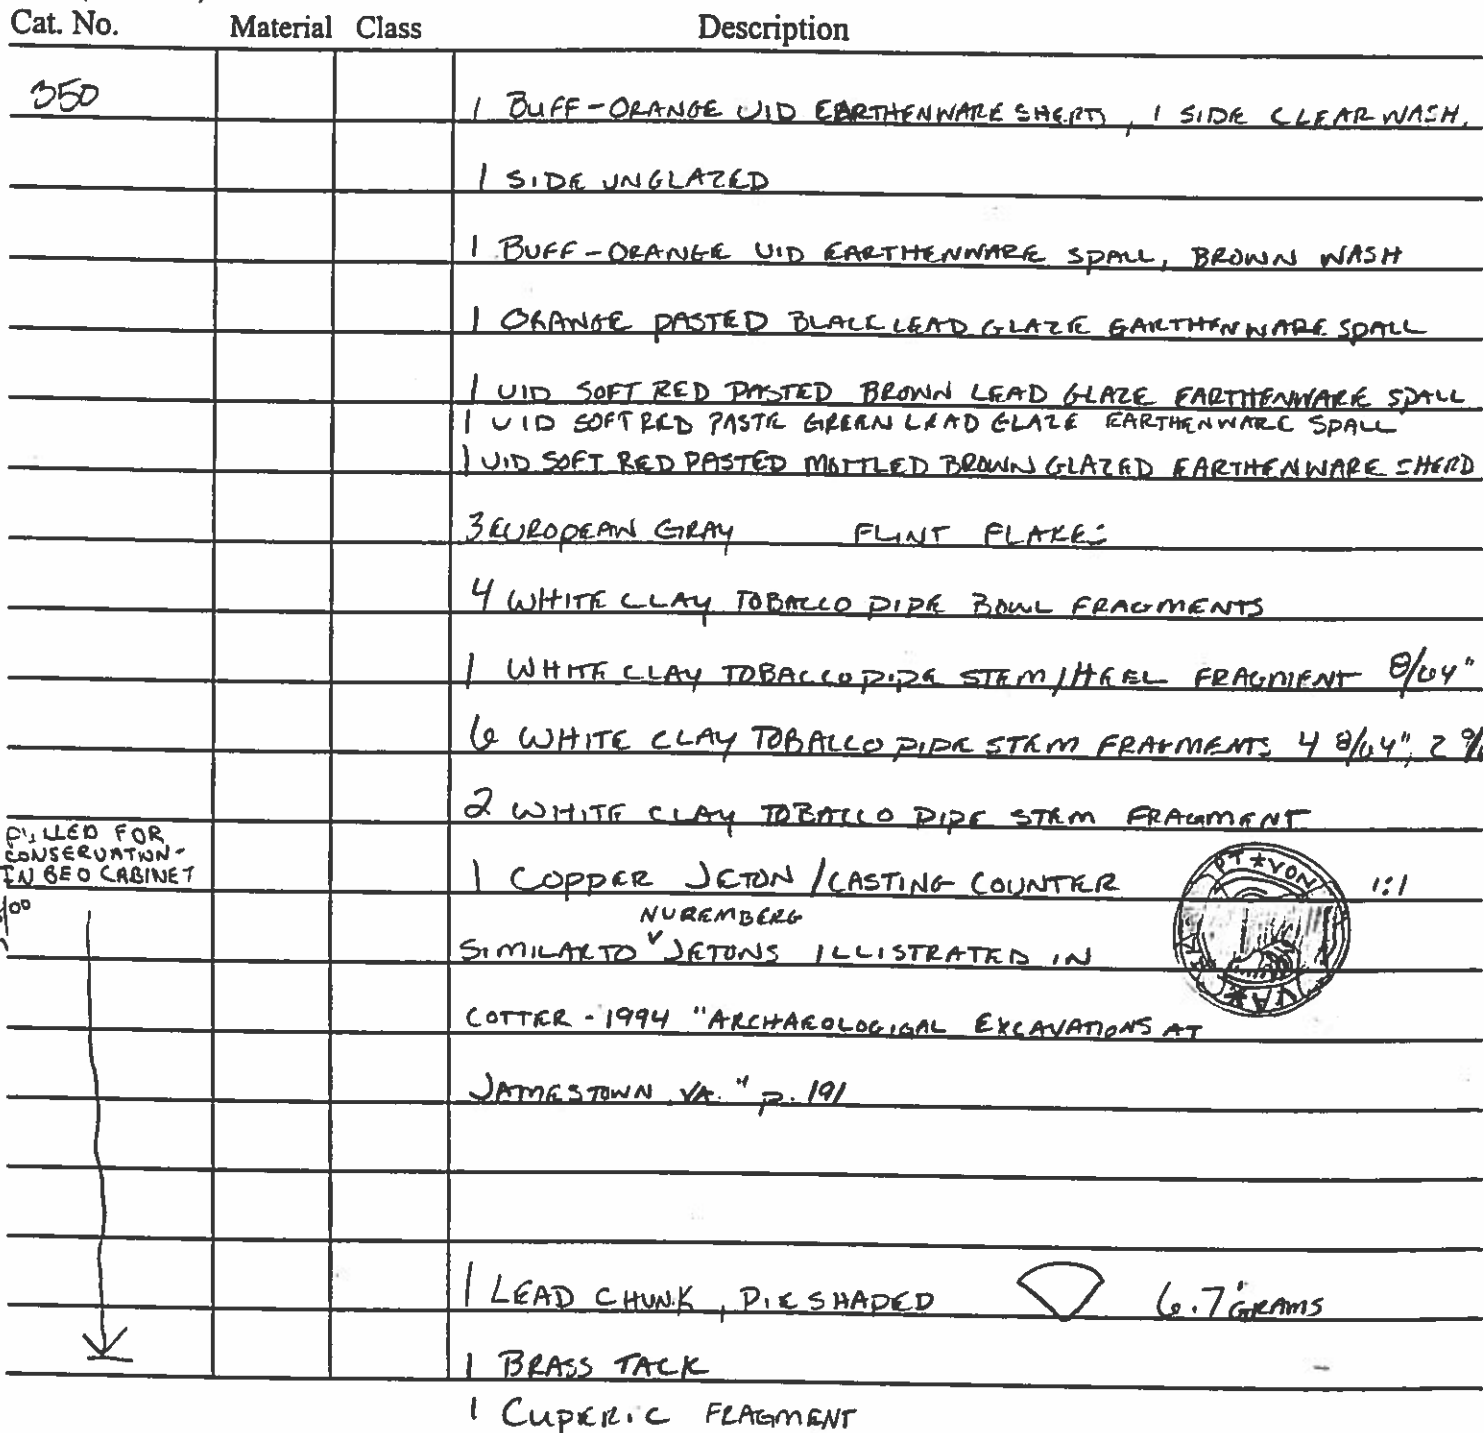 Cat. No. Material Class Description
350
1 BUFF-ORANGE UID EARTHENWARE SHERD, 1 SIDE CLEAR WASH,
1 SIDE UNGLAZED
1 BUFF-ORANGE UID EARTHENWARE SPALL, BROWN WASH
1 ORANGE PASTED BLACK LEAD GLAZE EARTHENWARE SPALL
1 UID SOFT RED PASTED BROWN LEAD GLAZE EARTHENWARE SPALL
1 UID SOFT RED PASTE GREEN LEAD GLAZE EARTHENWARE SPALL
1 UID SOFT RED PASTED MOTTLED BROWN GLAZED EARTHENWARE SHERD
3 EUROPEAN GRAY FLINT FLAKES
4 WHITE CLAY TOBACCO PIPE BOWL FRAGMENTS
1 WHITE CLAY TOBACCO PIPE STEM/HEEL FRAGMENT 8/64"
6 WHITE CLAY TOBACCO PIPE STEM FRAGMENTS 4 8/64", 2 9/
2 WHITE CLAY TOBACCO PIPE STEM FRAGMENT
PULLED FOR
CONSERVATION-
IN BEO CABINET
/00
1 COPPER JETON/CASTING COUNTER 1:1
PT★VON
NUREMBERG
SIMILAR TO ˅ JETONS ILLISTRATED IN
COTTER - 1994 "ARCHAEOLOGICAL EXCAVATIONS AT
JAMESTOWN VA." p. 191
1 LEAD CHUNK, PIE SHAPED 6.7 GRAMS
1 BRASS TACK
1 CUPERIC FRAGMENT